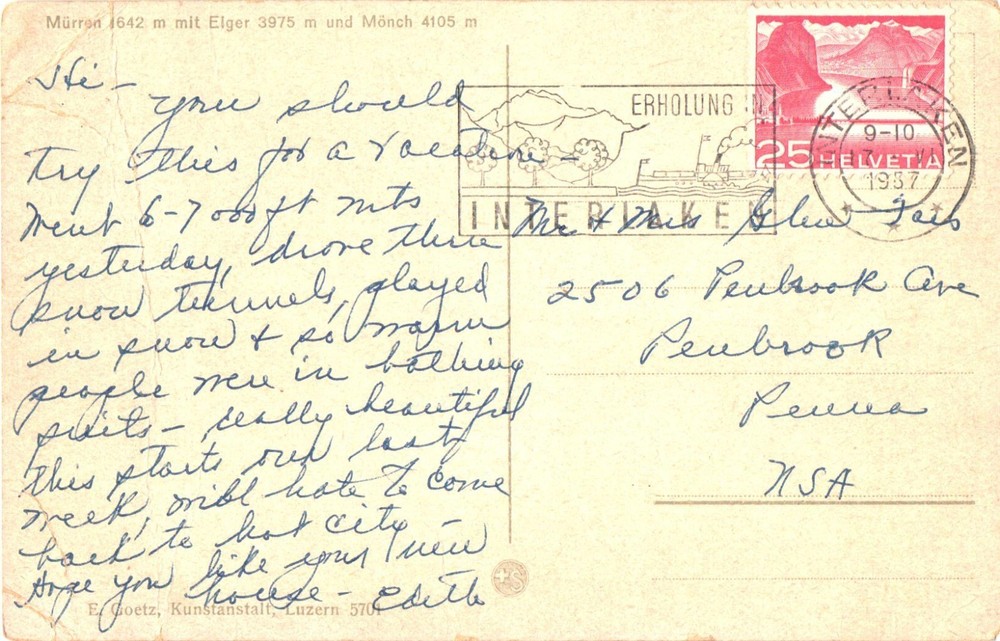 Mürren 1642 m mit Eiger 3975 m und Mönch 4105 m
Hi -
you should
try this for a vacation -
Went 6-7000 ft mts
yesterday, drove thru
snow tunnels, played
in snow & so warm
people were in bathing
suits - really beautiful
this starts our last
week, will hate to come
back to hot city -
Hope you like your new
house - Edith
E. Goetz, Kunstanstalt, Luzern 5701
ERHOLUNG IN
INTERLAKEN
25 HELVETIA
INTERLAKEN
9-10
VI
1957
Mr & Mrs Glen
2506 Penbrook Ave
Penbrook
Penna
USA